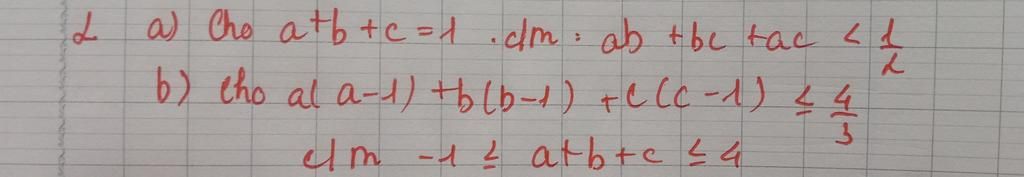 2 a) Cho a+b+c=1. c/m: ab+bc+ac < 1/2
b) Cho a(a-1)+b(b-1)+c(c-1) ≤ 4/3
c/m -1 ≤ a+b+c ≤ 4